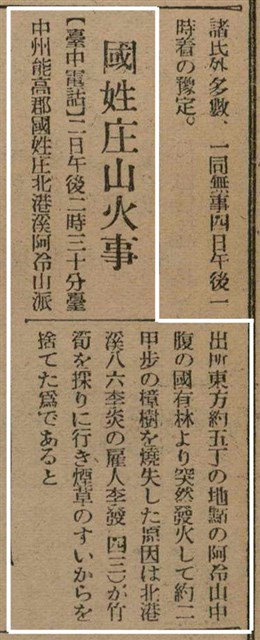 諸氏外多數、一同無事四日午後一
時着の豫定。
國姓庄山火事
【臺中電話】二日午後二時三十分臺
中州能高郡國姓庄北港溪阿冷山派
出所東方約五丁の地點の阿冷山中
腹の國有林より突然發火して約二
甲步の樟樹を燒失した原因は北港
溪八六李炎の雇人李發(四三)が竹
筍を採りに行き煙草のすいからを
捨てた爲であると